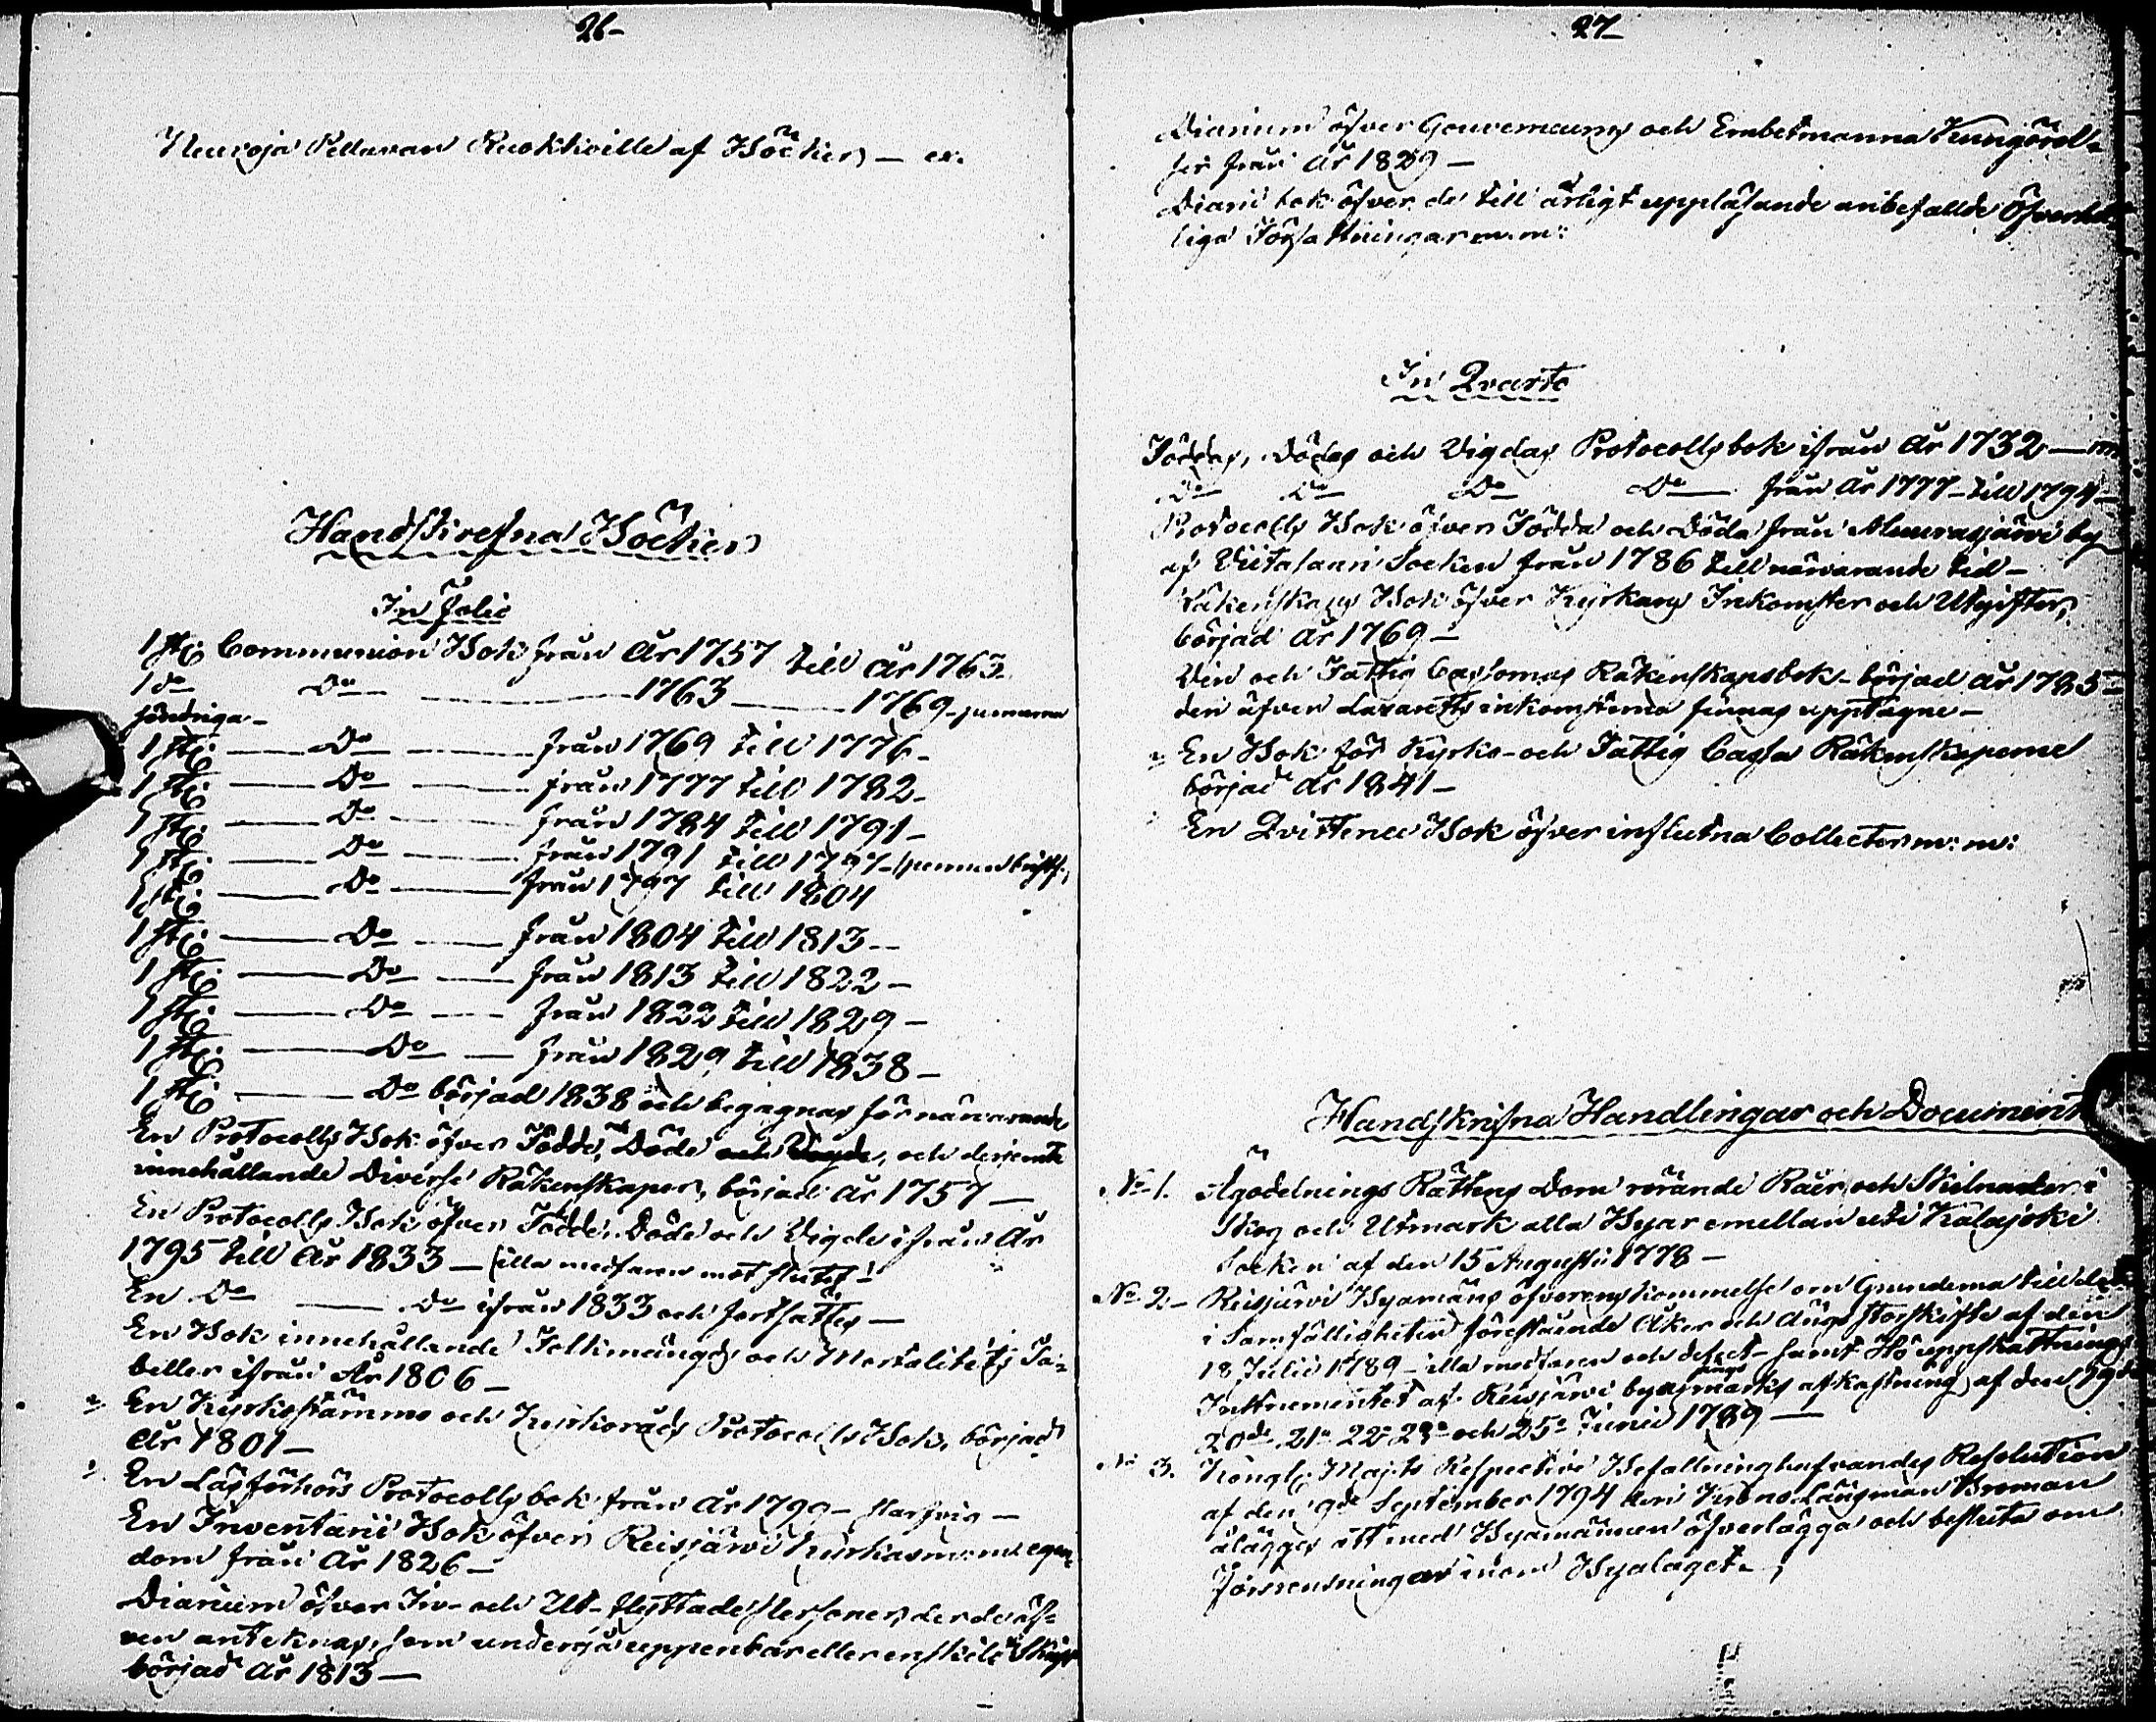 26-
Neuvoja Pellavan Ruokkoille af Böcker — ex.
Handskrefna Böcker
In Folio
1 st: Communion Bok från År 1757 till År 1763
1 do Do 1763 — 1769 -
söndriga -
1 st: — Do — från 1769 till 1776 -
1 st: — Do — från 1777 till 1782 -
1 st: — Do — från 1784 till 1791 -
1 st: — Do — från 1791 till 1797 -
1 st: — Do — från 1797 till 1804
1 st: — Do — från 1804 till 1813 -
1 st: — Do — från 1813 till 1822 -
1 st: — Do — från 1822 till 1829 -
1 st: — Do — från 1829 till 1838 -
1 st: — Do börjad 1838 och begagnas för närvarande
En Protocolls Bok öfver Födde, Döde och Vigde, och derjemte
innehållande Diverse Räkenskaper, börjad år 1757 —
En Protocolls Bok öfver Födde, Döde och Vigde ifrån År
1795 till År 1833 — (illa medfaren mot slutet!
En Do — Do ifrån 1833 och fortsättes —
En Bok innehållande Folkmängds och Mortalitets Ta-
beller ifrån År 1806 —
En Kyrkostämmo och Kyrkoråds Protocolls Bok, börjad
År 1801 —
En Läsförhörs Protocolls bok från År 1799 -
En Inventarii Bok öfver Reisjärvi Kyrkas m: m: egen-
dom från År 1826 —
Diarium öfver In- och Ut-flyttade Personer, der de äf-
ven anteknas, som undergå uppenbar eller enskild Skrift
börjad År 1813 —
27-
Diarium öfver Gouverneurs och Embetsmanna Kungörel-
ser från År 1829 —
Diarii bok öfver de till årligt uppläsande anbefallde Öfverhet
liga Författningar m. m:
In Qvarto
Föddas, Dödas och Vigdas Protocolls bok ifrån År 1732 —
Do Do Do Do — från År 1777 - till 1794 -
Protocolls Bok öfver Födda och Döda från Muurasjärvi by
af Pihtasaari Socken från 1786 till närvarande tid —
Räkenskaps Bok öfver Kyrkans Inkomster och Utgifter,
börjad År 1769 —
Vin och Fattig Cassornas Räkenskapsbok - börjad År 1785 -
den äfven Lazaretts inkomsterna finnas upptagne —
En Bok för Kyrko- och Fattig Cassa Räkenskaperne
börjad År 1841 —
En Qvittence Bok öfver influtna Collecter m: m:
Handskrifna Handlingar och Document
No 1. Ägodelnings Rättens Dom rörande Råer och Skilnader i
Skog och Utmark alla Byar emellan uti Kalajoki
Socken af den 15 Augusti 1778 —
No 2 - Reisjärvi Byamäns öfverenskommelse om Grunderna till det
i Samfälligheten förestående Åker och Ängs storskifte af den
18 Julii 1789 - illa medfaren och defect - samt Hö uppskattnings
Instrumentet af Reisjärvi byängsmarks afkastning, af den 19de
20de 21e 22e 23e och 25e Junii 1789 —
No 3. Kongl: Maj:ts Respective Befallningshafvandes Resolution
af den 9de September 1794 deri Krono Länsman Broman
ålägges att med Byamännen öfverlägga och besluta om
Forsrensningar inom Byalaget -